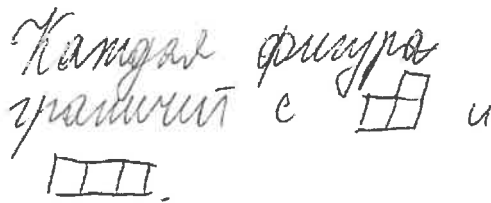 Каждая фигура
граничит с и
.